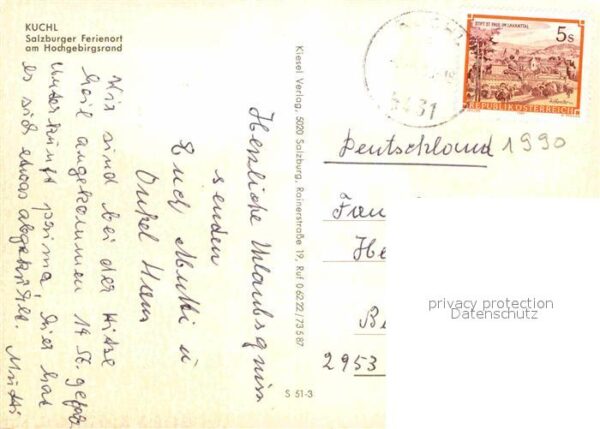 KUCHL
Salzburger Ferienort
am Hochgebirgsrand
Wir sind bei der Hitze
heil angekommen 14 St.
Unterkunft prima, hier hat
es sich etwas abgekühlt. Mutti
Herzliche Urlaubsgrüsse
senden
Euch Mutti u
Onkel Hans
Kiesel Verlag, 5020 Salzburg, Rainerstraße 19, Ruf 0 62 22 / 7 35 87
S 51-3
5431
STIFT ST. PAUL IM LAVANTTAL
5 S
REPUBLIK ÖSTERREICH
Deutschland 1990
2953
privacy protection
Datenschutz